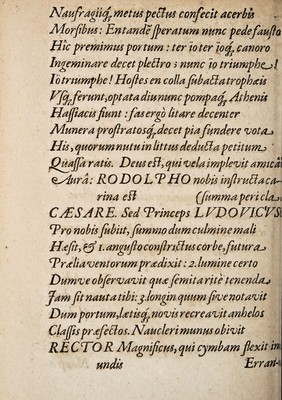 Naufragiiq́, metus pectus confecit acerbis
Morsibus: Entandẽ speratum nunc pede fausto
Hic premimus portum: ter ìo ter ioq́, canoro
Ingeminare decet plectro; nunc ìo triumphe!
Iò triumphe! Hostes en colla subacta trophæis
Usq́, ferunt, optata diu nunc pompaq́, Athenis
Hassiacis fiunt: fas ergò litare decenter
Munera prostratosq́, decet pia fundere vota
His, quorum nutu in littus deducta petitum
Quassa ratis. Deus est, qui vela implevit amicâ
Aurâ: RODOLPHO nobis instructa ca-
rina est (summa peri cla
CÆSARE. Sed Princeps LVDOVICVS
Pro nobis subiit, summo dum culmine mali
Hæsit, & 1. angusto constructus corbe, futura
Prælia ventorum prædixit: 2. lumine certo
Dumve observavit quæ semita ritè tenenda
Jam sit nauta tibi: 3. longin quum sive notavit
Dum portum, lætisq́, novis recreavit anhelos
Classis præfectos. Naucleri munus obivit
RECTOR Magnificus, qui cymbam flexit in
undis Erran-